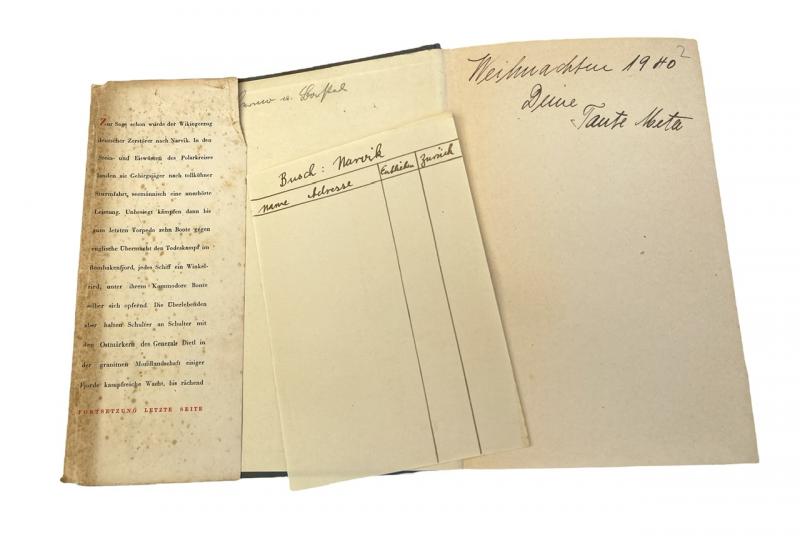 Zur Sage schon wurde der Wikingerzug
deutscher Zerstörer nach Narvik. In den
Stein- und Eiswüsten des Polarkreises
landen sie Gebirgsjäger nach tollkühner
Sturmfahrt, seemännisch eine unerhörte
Leistung. Unbesiegt kämpfen dann bis
zum letzten Torpedo zehn Boote gegen
englische Übermacht den Todeskampf im
Rombakenfjord, jedes Schiff ein Winkel-
ried, unter ihrem Kommodore Bonte
selber sich opfernd. Die Überlebenden
aber halten Schulter an Schulter mit
den Ostmärkern des Generals Dietl in
der granitnen Mondlandschaft eisiger
Fjorde kampfreiche Wacht, bis rächend
FORTSETZUNG LETZTE SEITE
u.
Busch: Narvik
Name Adresse Entliehen Zurück
Weihnachten 1940
2
Deine
Tante Meta